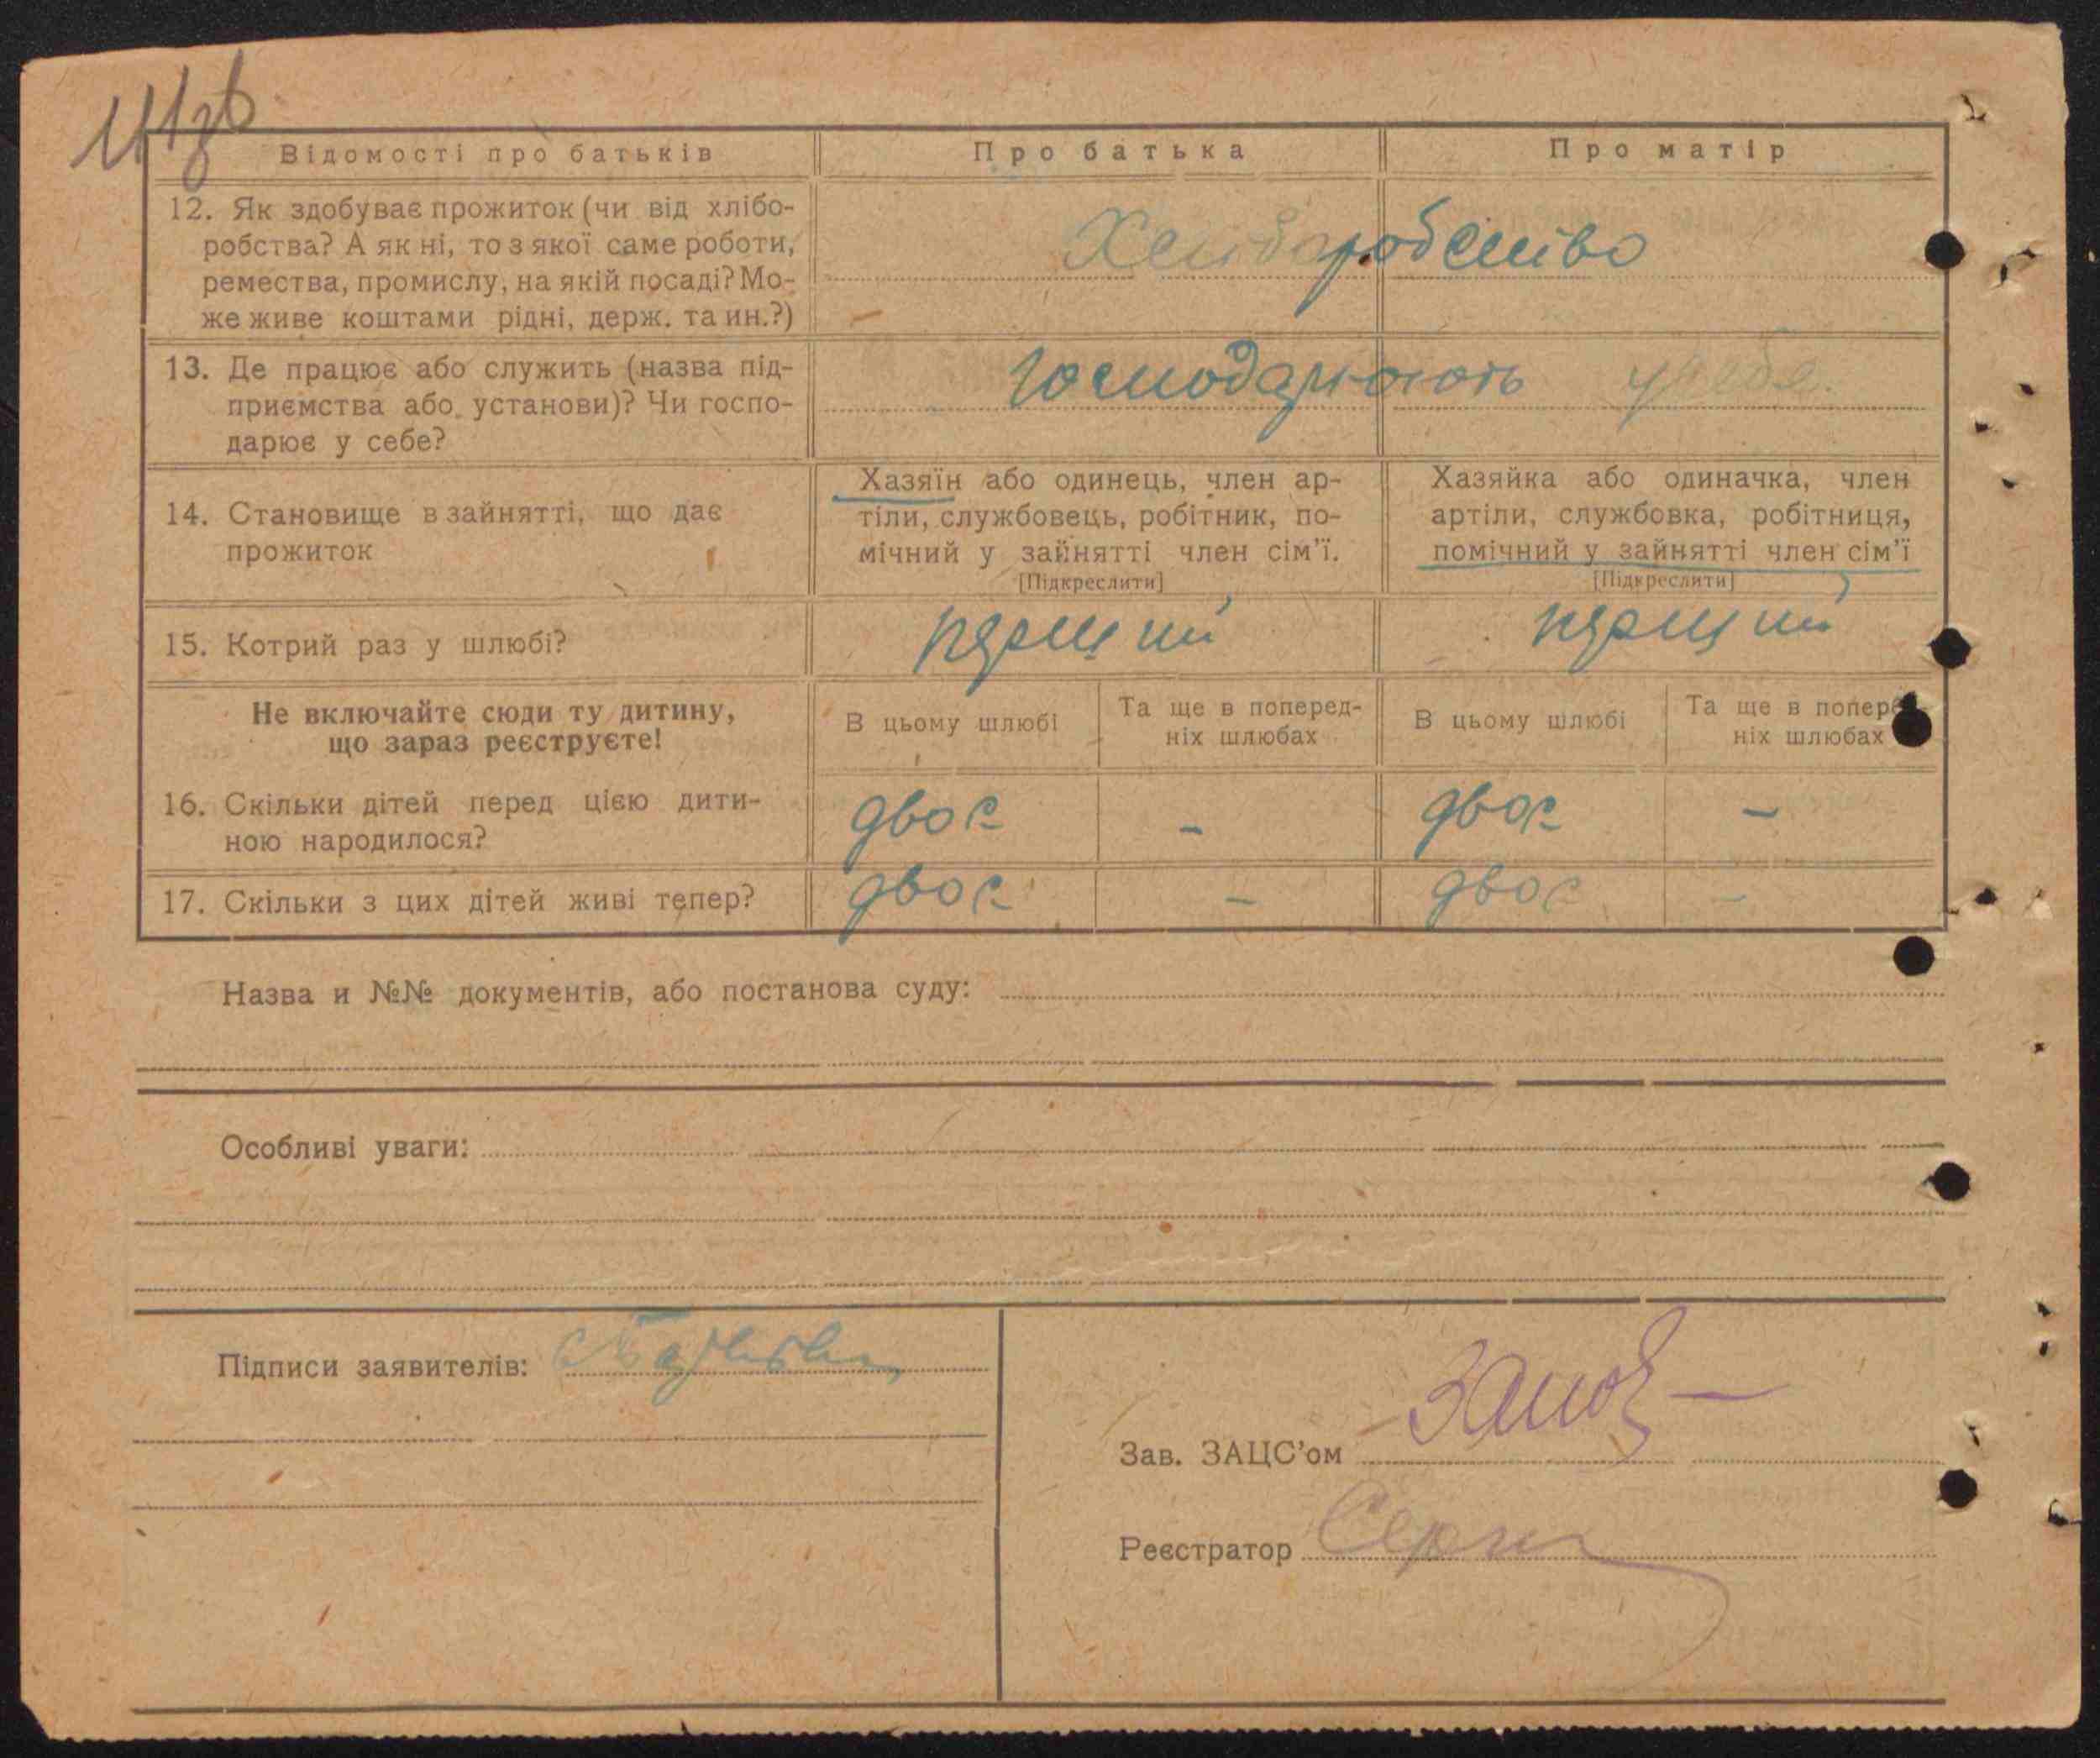 Відомості про батьків
Про батька
Про матір
12. Як здобуває прожиток (чи від хлібо-
робства? А як ні, то з якої саме роботи,
ремества, промислу, на якій посаді? Мо-
же живе коштами рідні, держ. та ин.?)
Хлиборобство
13. Де працює або служить (назва під-
приємства або установи)? Чи госпо-
дарює у себе?
Господарюють у себе.
14. Становище в зайнятті, що дає
прожиток
Хазяїн або одинець, член ар-
тіли, службовець, робітник, по-
мічний у зайнятті член сім'ї.
[Підкреслити]
Хазяйка або одиначка, член
артіли, службовка, робітниця,
помічний у зайнятті член сім'ї
[Підкреслити]
15. Котрий раз у шлюбі?
перший
перший
Не включайте сюди ту дитину,
що зараз реєструєте!
В цьому шлюбі
Та ще в поперед-
ніх шлюбах
В цьому шлюбі
Та ще в попер
ніх шлюбах
16. Скільки дітей перед цією дити-
ною народилося?
двоє
-
двоє
-
17. Скільки з цих дітей живі тепер?
двоє
-
двоє
-
Назва и №№ документів, або постанова суду:
Особливі уваги:
Підписи заявителів:
Зав. ЗАЦС'ом
Реєстратор